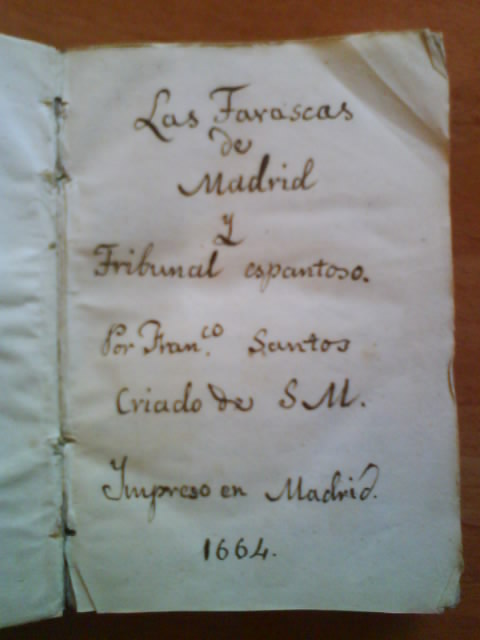 Las Tarascas
de
Madrid
Y
Tribunal espantoso.
Por Fran.co Santos
Criado de S M.
Impreso en Madrid.
1664.